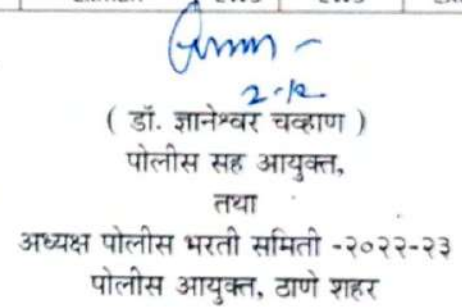 2-12
( डॉ. ज्ञानेश्वर चव्हाण )
पोलीस सह आयुक्त,
तथा
अध्यक्ष पोलीस भरती समिती -२०२२-२३
पोलीस आयुक्त, ठाणे शहर